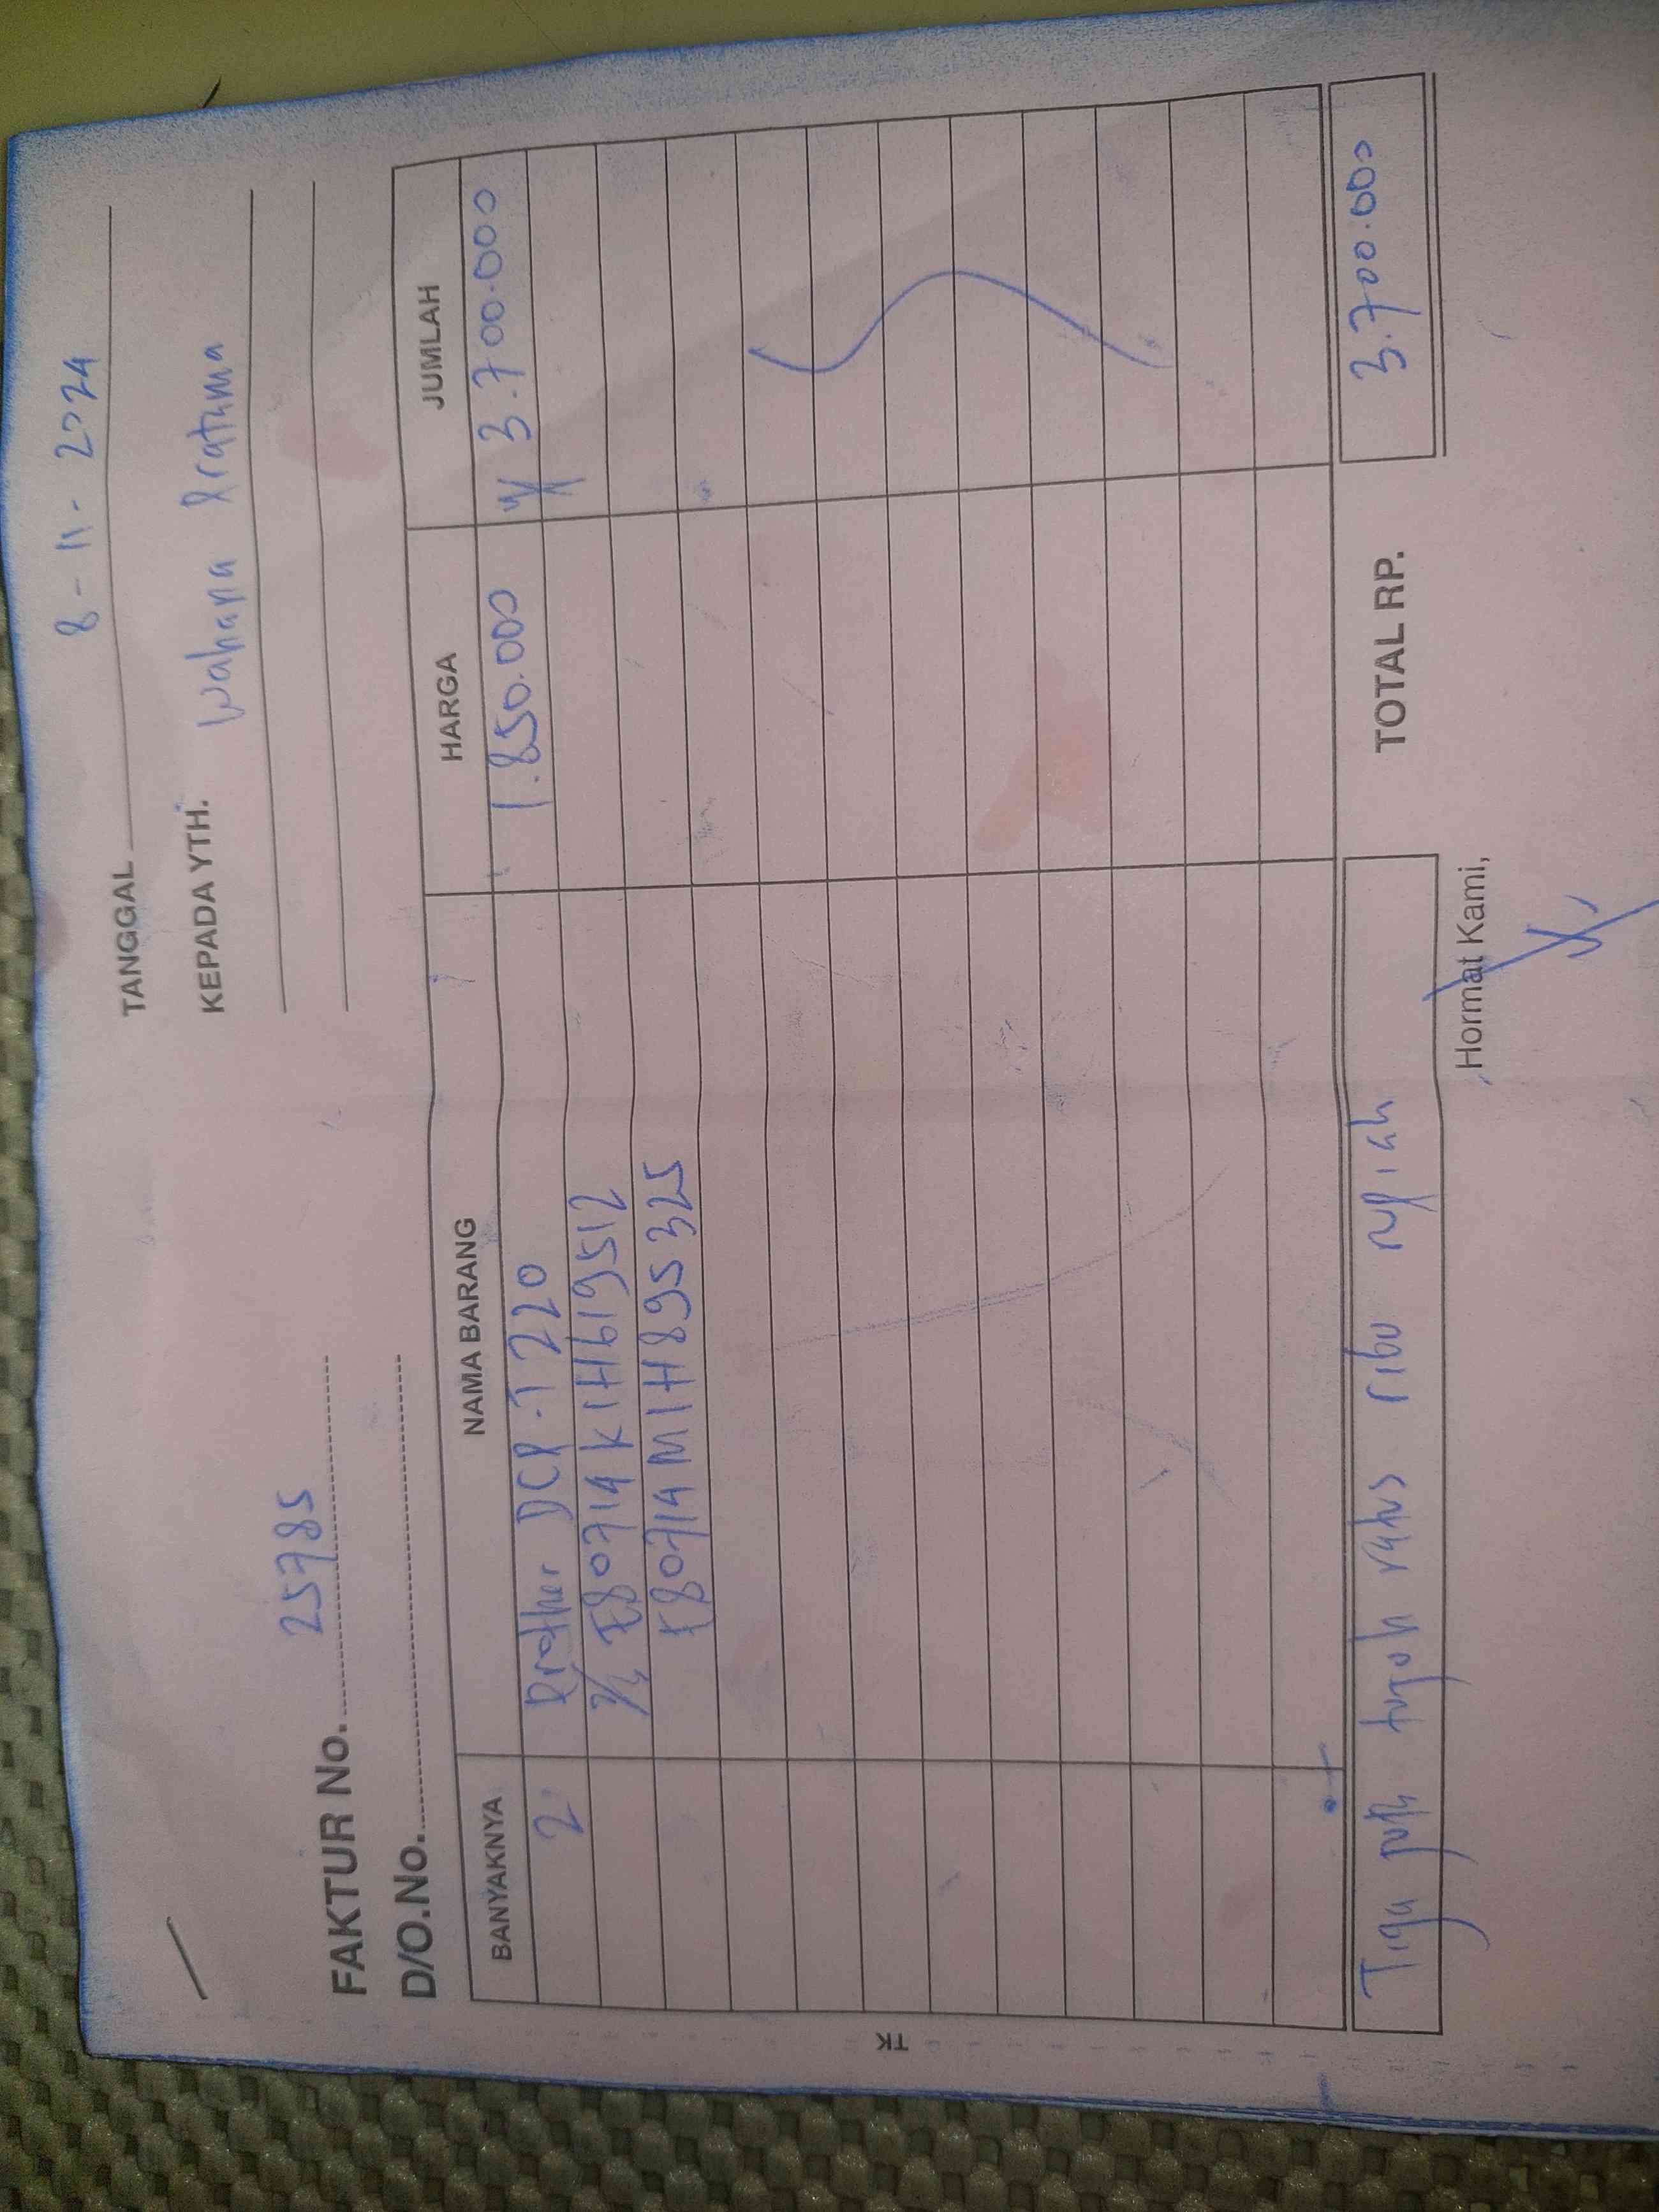 TANGGAL 8 - 11 - 2024
KEPADA YTH. Wahana Pratama
FAKTUR No. 25785
D/O.No.
BANYAKNYA NAMA BARANG HARGA JUMLAH
2 Brother DCP - T 220 1.850.000 3.700.000
E80714K1H619512
E80714M1H895325
TK
TOTAL RP. 3.700.000
Tiga tujuh ratus ribu rupiah
Hormat Kami,